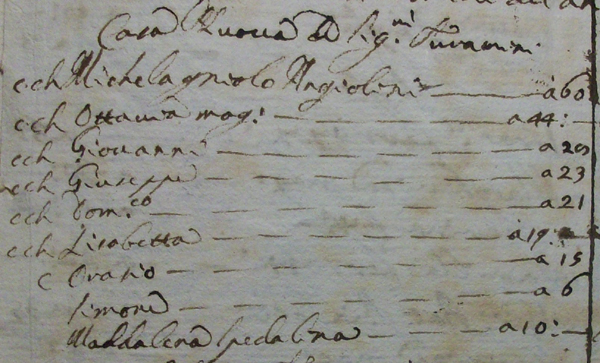 Casa Nuova de Sig.ri Turamini
c ch Michelagniolo Angiolini a 60
c ch Ottavia mog: a 44:
c ch Giovanni a
c ch Giuseppe a 23
c ch Dom.co a 21
c ch Lisabetta a 19
c Orazio a 15
Simone a 6
Maddalena Spedalina a 10: